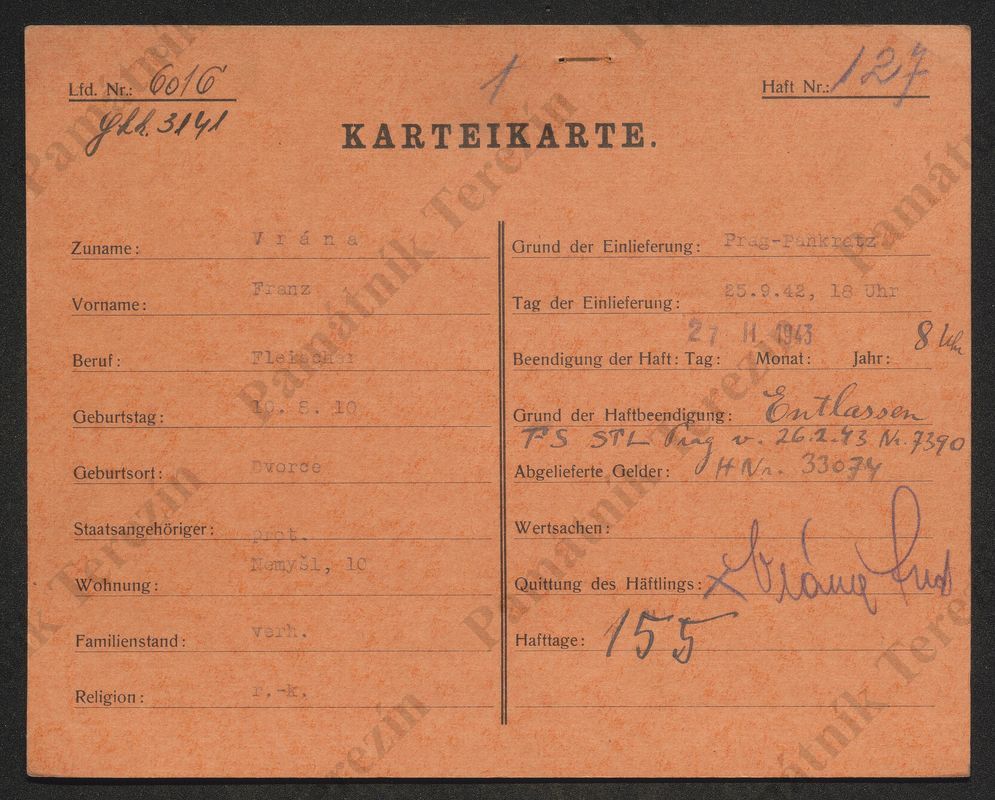 Lfd. Nr.: 6016
Haft Nr.: 127
1
3141
KARTEIKARTE.
Zuname: Vrána
Vorname: Franz
Beruf: Fleischer
Geburtstag: 10. 10
Geburtsort: Dvorce
Staatsangehöriger: prot.
Wohnung: Nemyšl, 10
Familienstand: verh.
Religion: r.-k.
Grund der Einlieferung: Prag-Pankratz
Tag der Einlieferung: 25.9.42, 18 Uhr
27 II 1943
8 Uhr
Beendigung der Haft: Tag: Monat: Jahr:
Grund der Haftbeendigung: Entlassen
FS STL Prag v. 26.2.43 Nr. 7390
Abgelieferte Gelder: H Nr. 33074
Wertsachen:
Quittung des Häftlings: x Vrána
Hafttage: 155
Památník Terezín